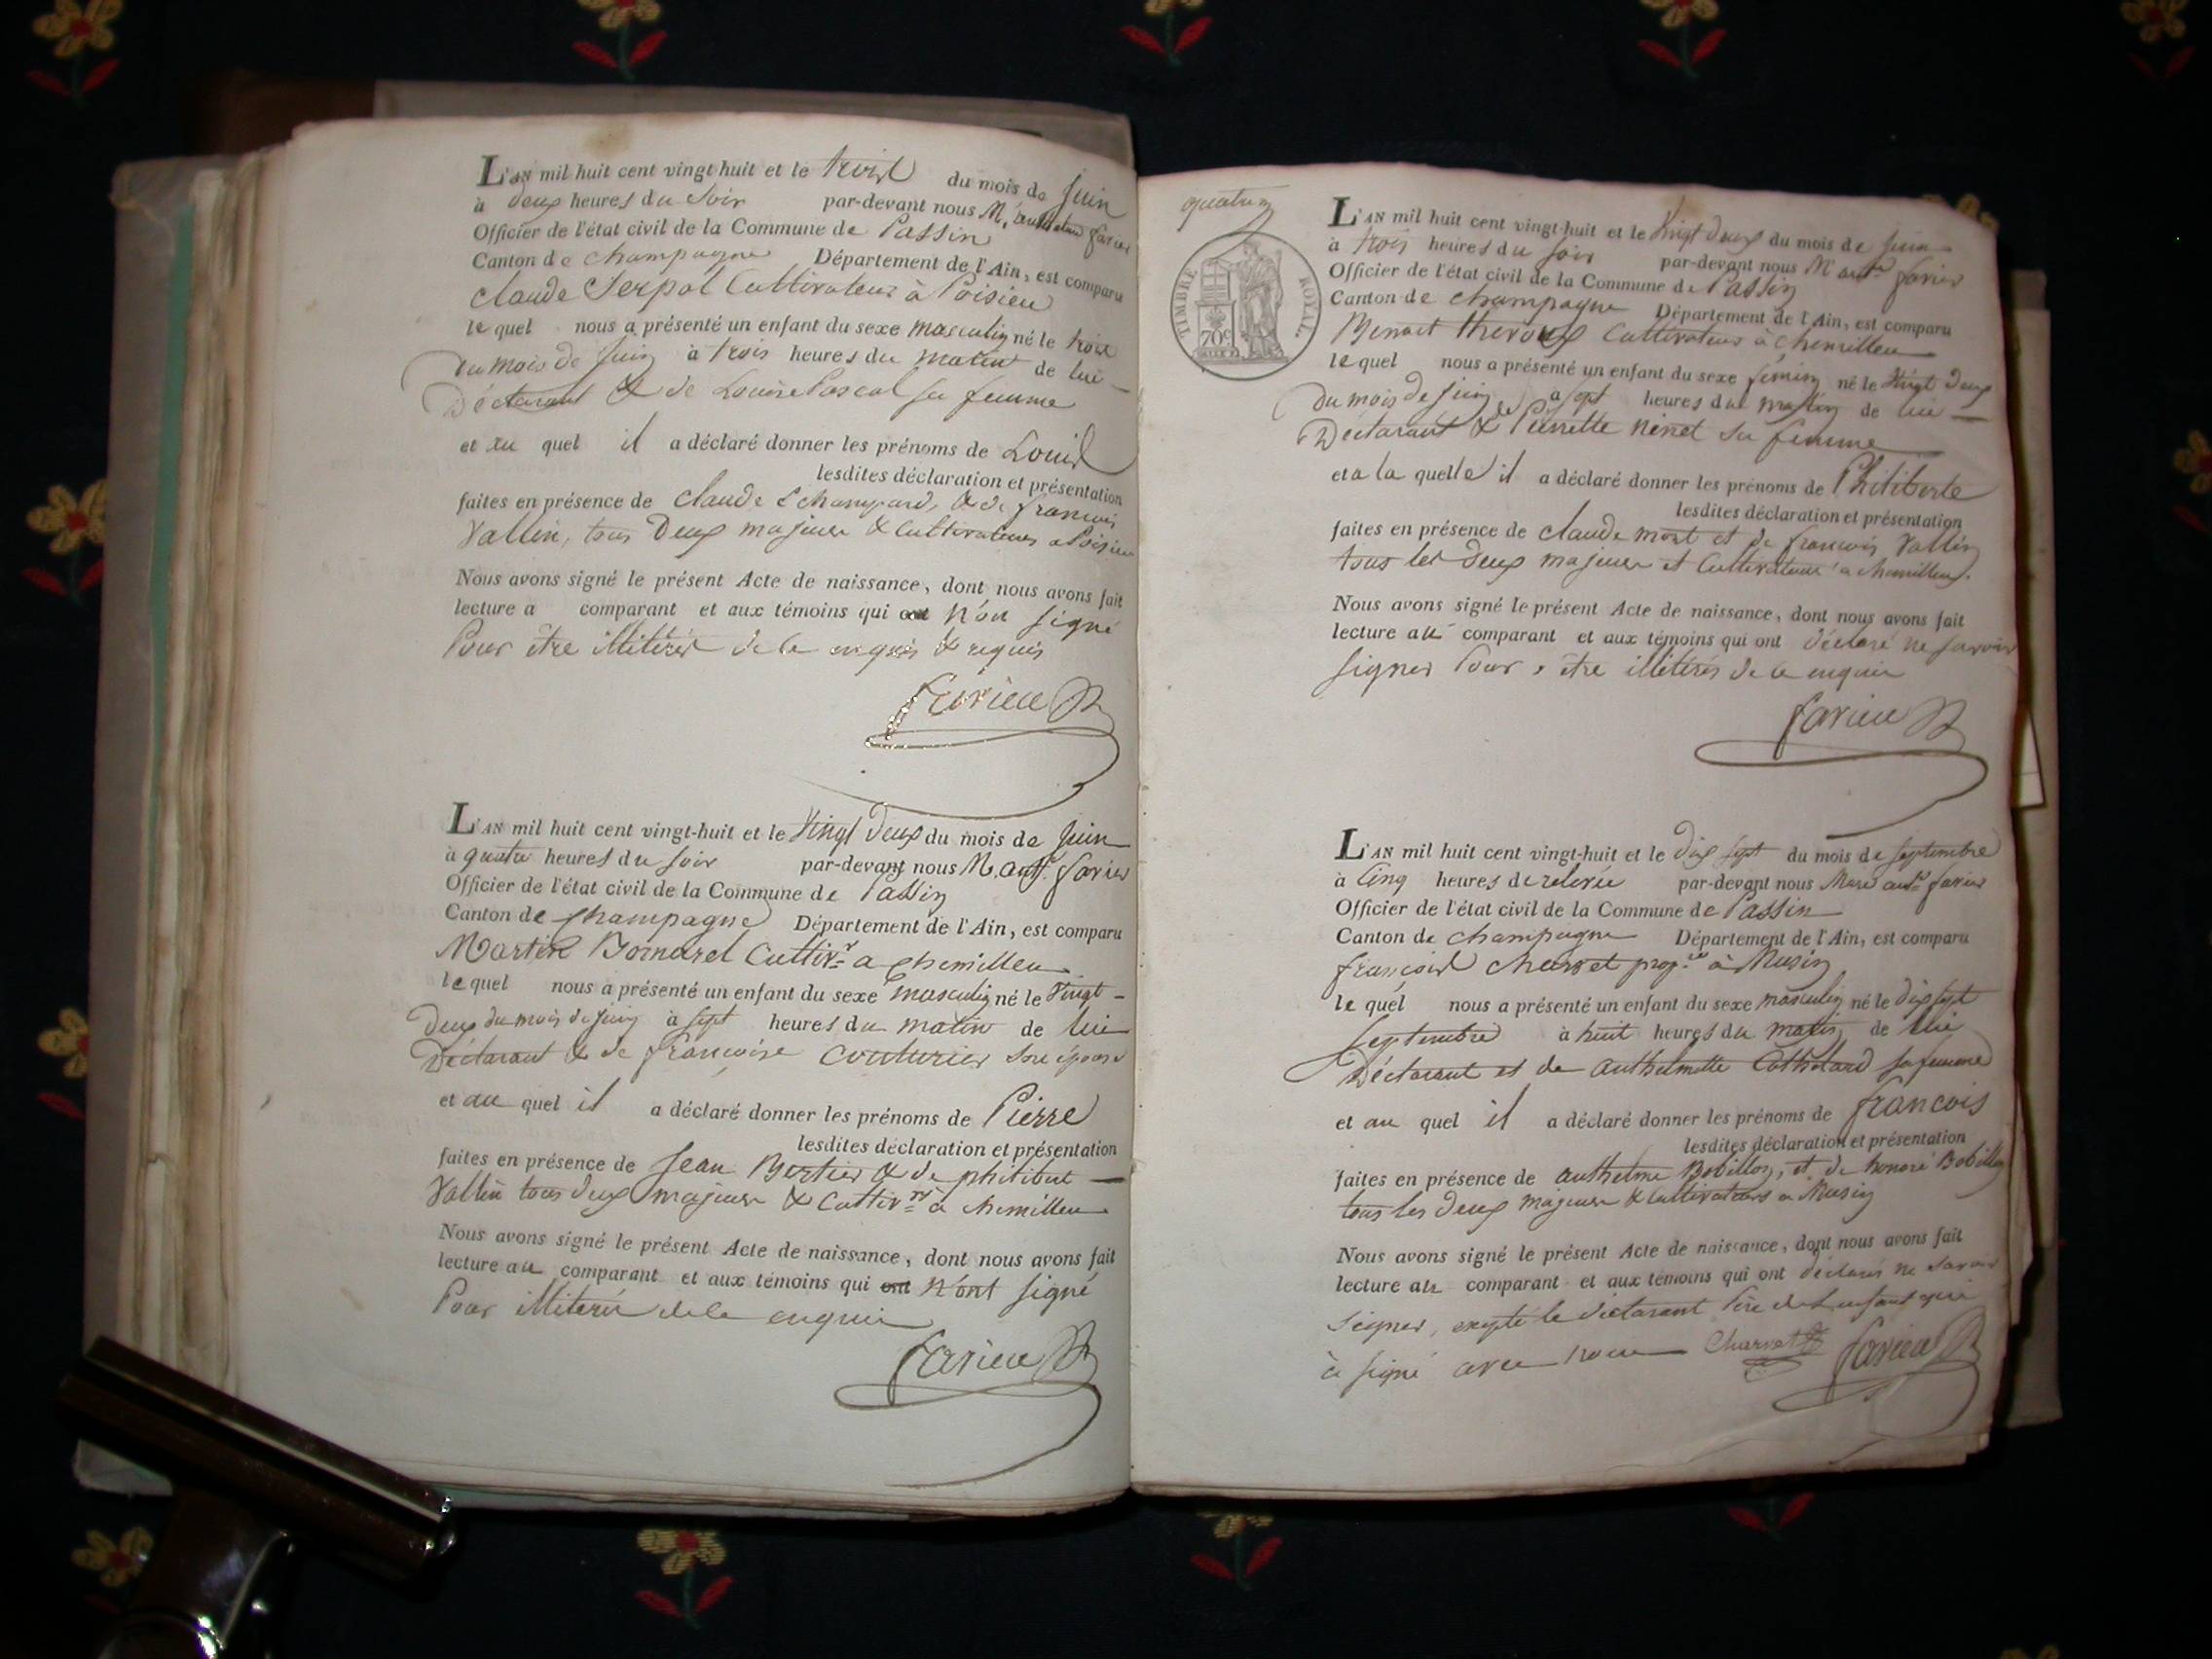 L'AN mil huit cent vingt-huit et le trois du mois de Juin
à deux heures du Soir par-devant nous M. favier
Officier de l'état civil de la Commune de Passin
Canton de champagne Département de l'Ain, est comparu
claude Serpol Cultivateur à Poisieu
le quel nous a présenté un enfant du sexe masculin né le trois
du mois de Juin à trois heures du matin de lui
Déclarant & de Louise Pascal sa femme
et au quel il a déclaré donner les prénoms de Louis
lesdites déclaration et présentation
faites en présence de claude & de francois
Vallin, tous Deux majeurs & Cultivateurs a Poisieu
Nous avons signé le présent Acte de naissance, dont nous avons fait
lecture a comparant et aux témoins qui ont n'on signé
Pour être illitérés de ce enquis & requis
favier
L'AN mil huit cent vingt-huit et le Vingt deux du mois de Juin
à quatre heures du soir par-devant nous M. anth. favier
Officier de l'état civil de la Commune de Passin
Canton de champagne Département de l'Ain, est comparu
Martin Bornarel Cultivr a chemilleu
le quel nous a présenté un enfant du sexe masculin né le Vingt
Deux du mois de Juin à sept heures du matin de lui
Déclarant & de francoise couturier son épouse
et au quel il a déclaré donner les prénoms de Pierre
lesdites déclaration et présentation
faites en présence de Jean Bertier & de philibert
Vallin tous deux majeurs & Cultivrs à chemilleu
Nous avons signé le présent Acte de naissance, dont nous avons fait
lecture au comparant et aux témoins qui ont n'ont signé
Pour illiterés de ce enquis
favier
quatre
TIMBRE ROYAL
70c
L'AN mil huit cent vingt-huit et le Vingt deux du mois de Juin
à trois heures du soir par-devant nous M anth favier
Officier de l'état civil de la Commune de Passin
Canton de champagne Département de l'Ain, est comparu
Benoit Cultivateur à chemilleu
le quel nous a présenté un enfant du sexe feminin né le Vingt Deux
du mois de Juin à sept heures du matin de lui
Déclarant & de Pierrette sa femme
et a la quelle il a déclaré donner les prénoms de Philiberte
lesdites déclaration et présentation
faites en présence de claude mort et de francois Vallin
tous les deux majeurs et Cultivateurs a chemilleu.
Nous avons signé le présent Acte de naissance, dont nous avons fait
lecture au comparant et aux témoins qui ont déclaré ne savoir
signer Pour être illitérés de ce enquis
favier
L'AN mil huit cent vingt-huit et le dix sept du mois de septembre
à Cinq heures de relevée par-devant nous anth favier
Officier de l'état civil de la Commune de Passin
Canton de champagne Département de l'Ain, est comparu
francois charvet propre à Musin
le quel nous a présenté un enfant du sexe masculin né le dix sept
septembre à huit heures du matin de lui
Déclarant et de anthelmette Catholard sa femme
et au quel il a déclaré donner les prénoms de francois
lesdites déclaration et présentation
faites en présence de anthelme Bobillon, et de honoré Bobillon
tous les deux majeurs & Cultivateurs a Musin
Nous avons signé le présent Acte de naissance, dont nous avons fait
lecture au comparant et aux témoins qui ont déclarés ne savoir
signer, excepté le déclarant Père de L'enfant qui
à signé avec nous Charvet favier